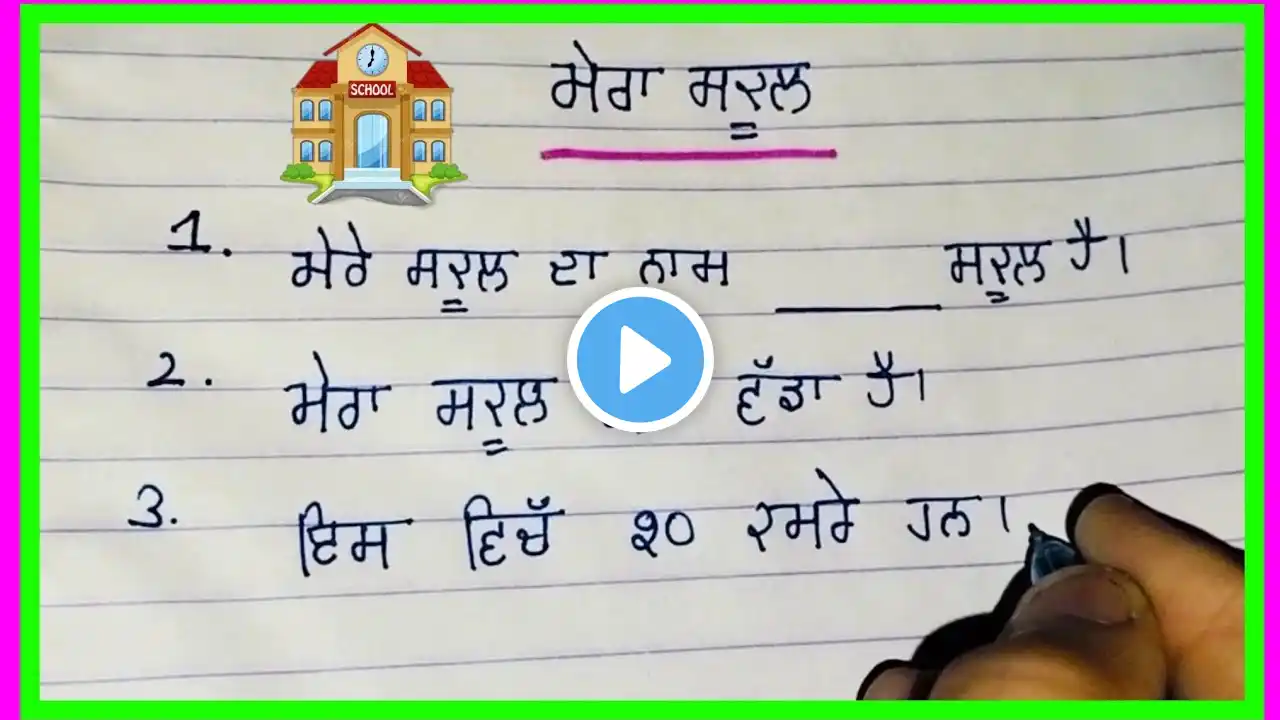 SCHOOL
ਮੇਰਾ ਸਕੂਲ
1. ਮੇਰੇ ਸਕੂਲ ਦਾ ਨਾਮ ______ ਸਕੂਲ ਹੈ।
2. ਮੇਰਾ ਸਕੂਲ ਵੱਡਾ ਹੈ।
3. ਇਸ ਵਿਚੱ ਕਮਰੇ ਹਨ।